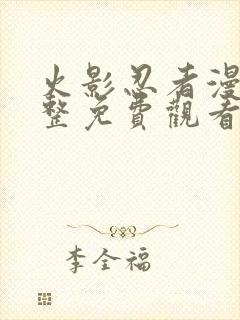 火影忍者漫
整免費觀看
李全福